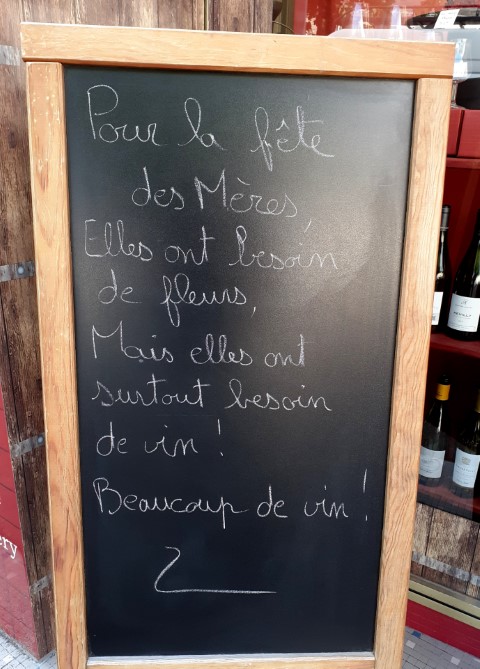 Pour la fête
des Mères,
Elles ont besoin
de fleurs,
Mais elles ont
surtout besoin
de vin !
Beaucoup de vin !
ery